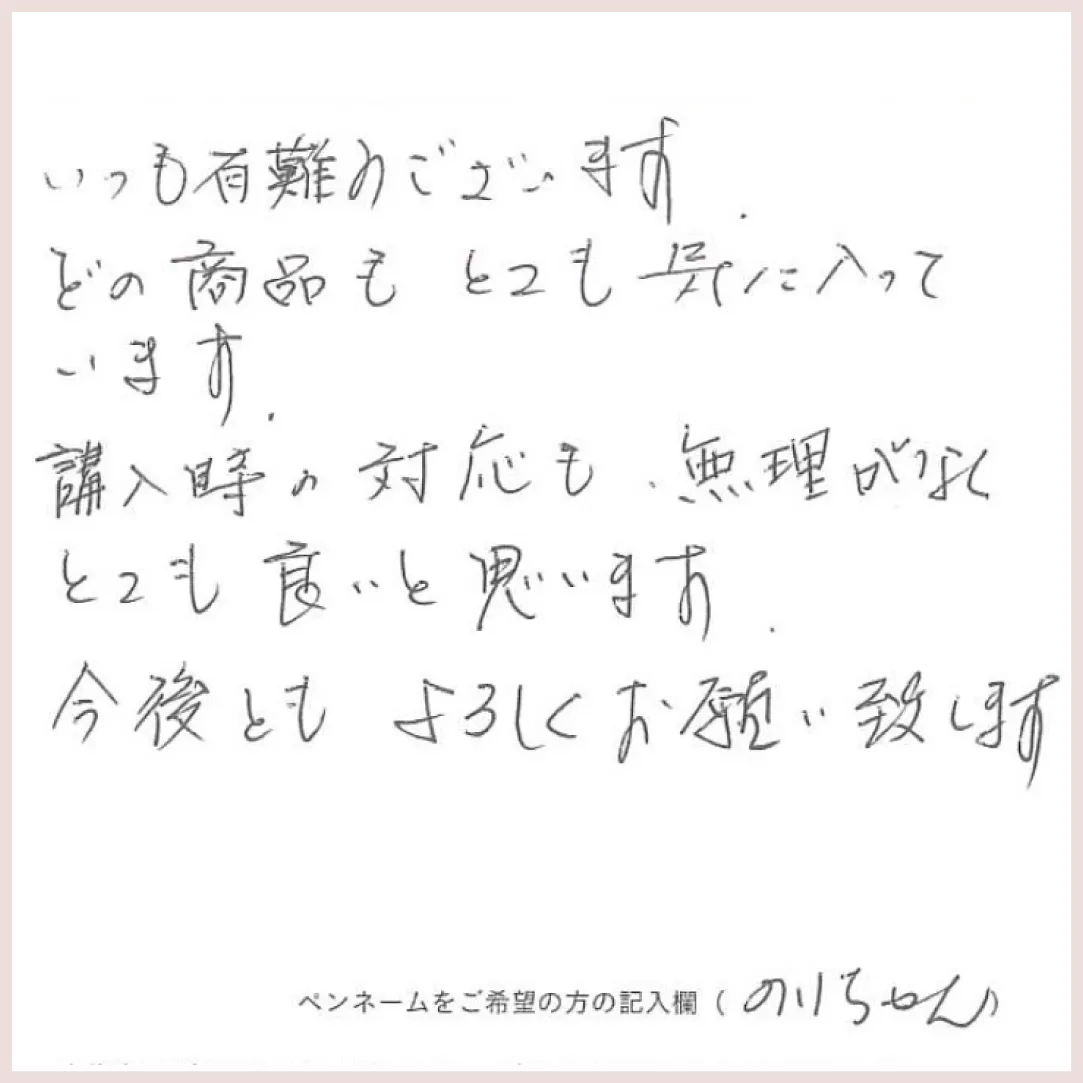 いつも有難うございます.
どの商品も とても 気に入って
います.
講入時の対応も、無理がなく
とても 良いと思います.
今後とも よろしくお願い致します
ペンネームをご希望の方の記入欄 ( のりちゃん )